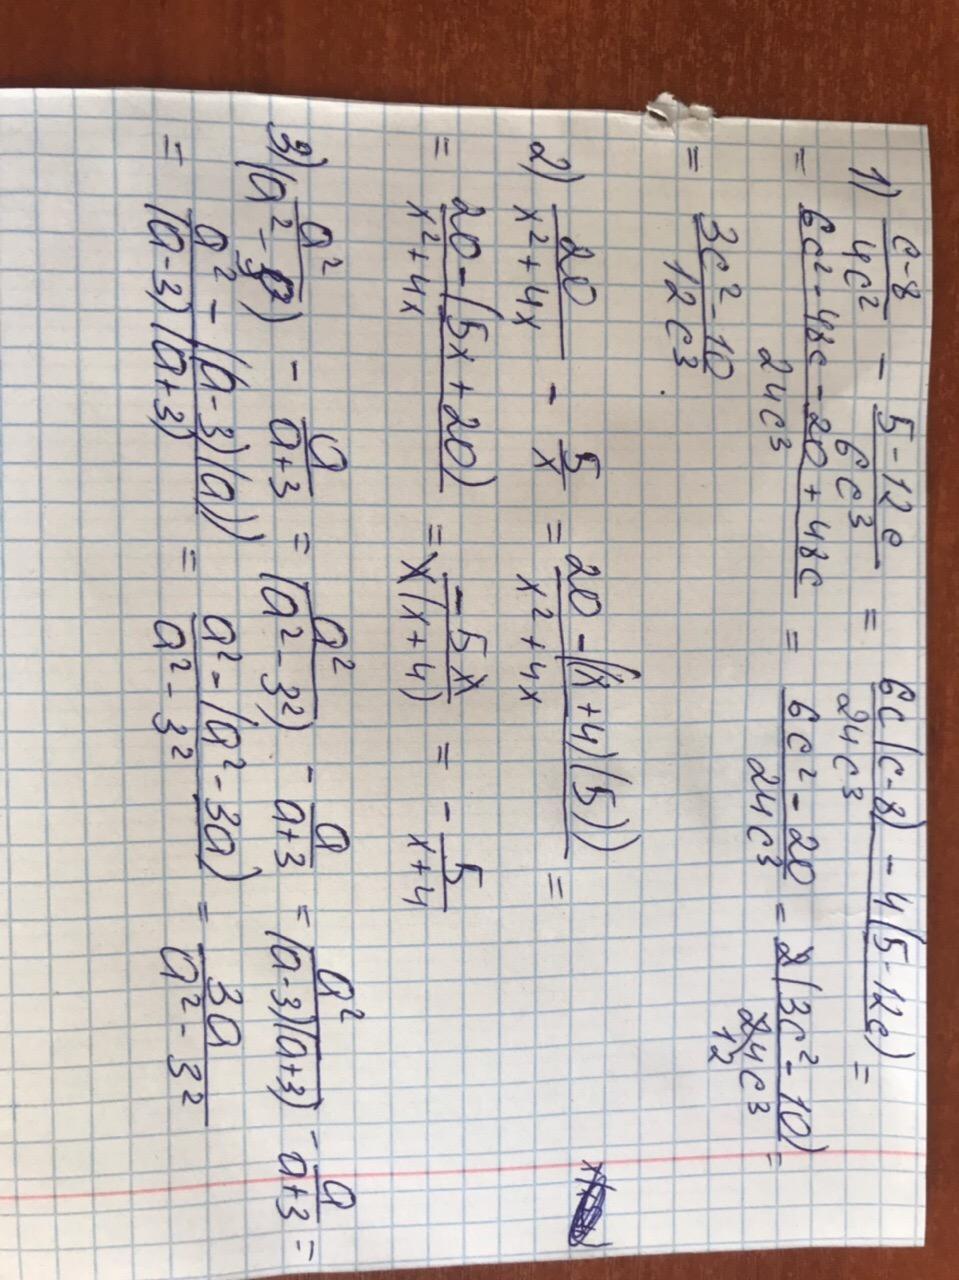 1) (c-8)/(4c²) - (5-12c)/(6c³) = (6c(c-8) - 4(5-12c))/(24c³) =
= (6c² - 48c - 20 + 48c)/(24c³) = (6c² - 20)/(24c³) = (2(3c² - 10))/(24c³) =
12
= (3c² - 10)/(12c³)
2) 20/(x²+4x) - 5/x = (20 - ((x+4)(5)))/(x²+4x) =
= (20 - (5x+20))/(x²+4x) = (-5x)/(x(x+4)) = - 5/(x+4)
3) a²/(a²-9) - a/(a+3) = a²/(a²-3²) - a/(a+3) = a²/((a-3)(a+3)) - a/(a+3) =
= (a² - ((a-3)(a)))/((a-3)(a+3)) = (a² - (a² - 3a))/(a² - 3²) = 3a/(a² - 3²)